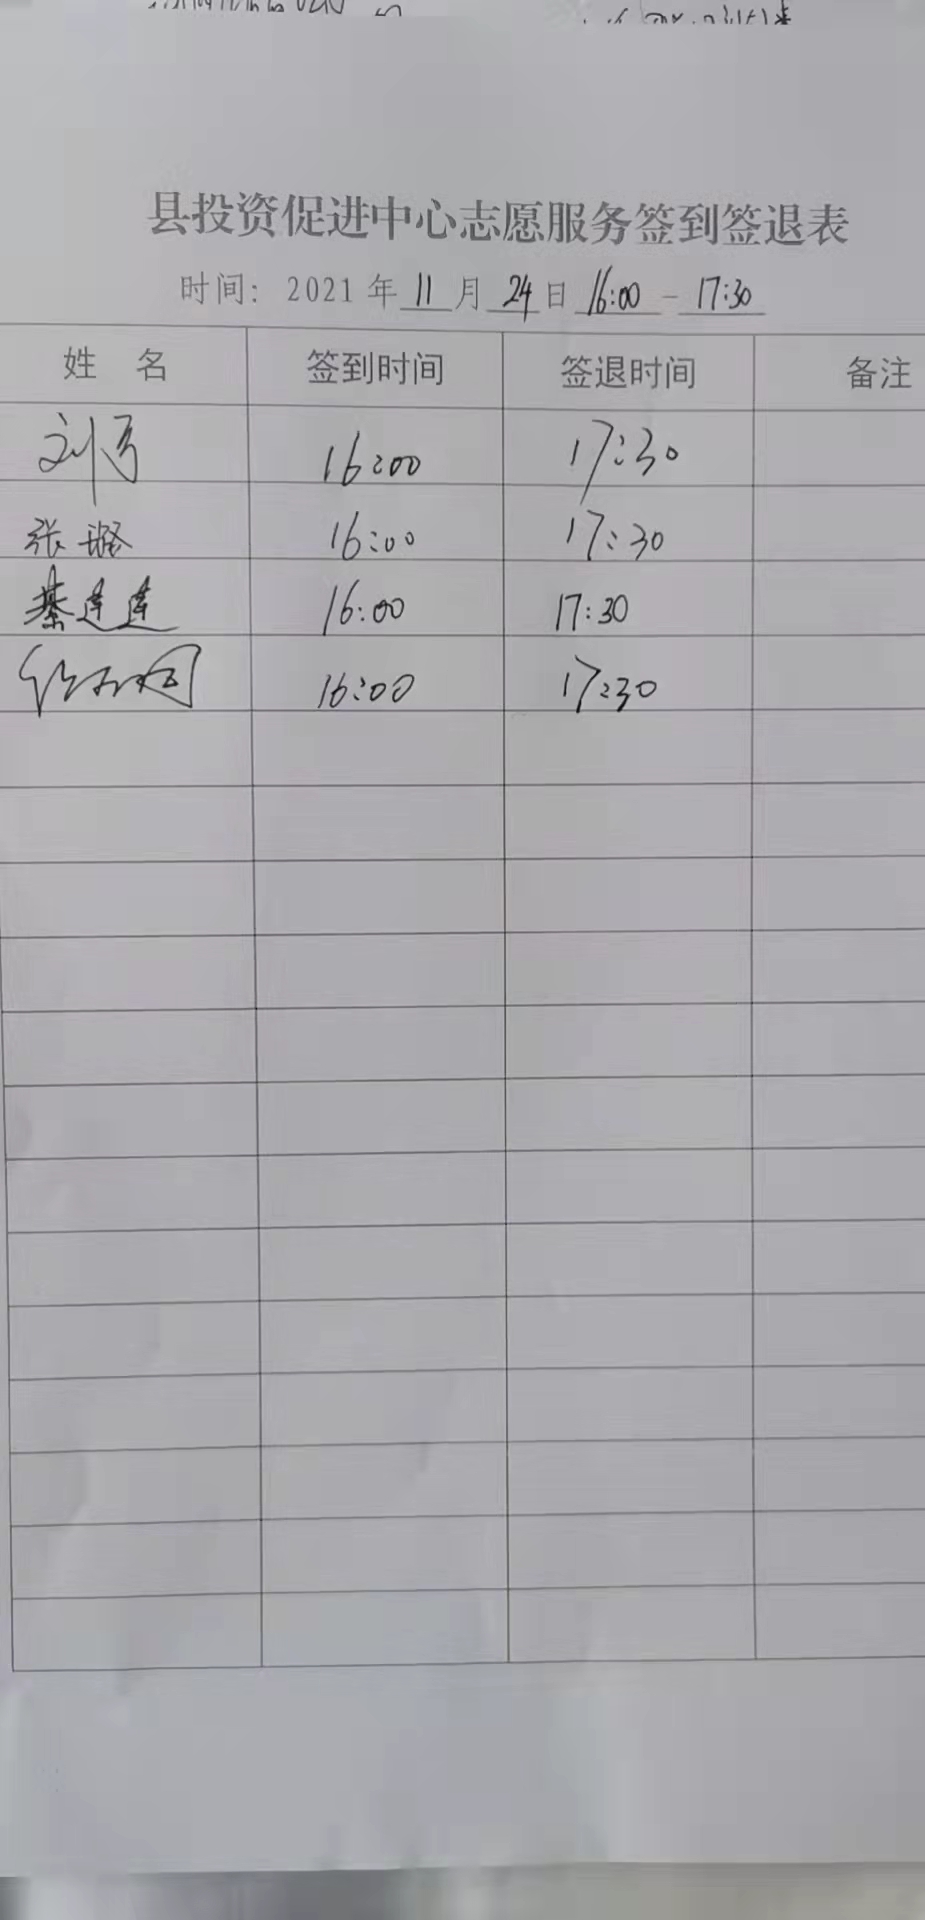 县投资促进中心志愿服务签到签退表
时间：2021年11月24日16:00-17:30
姓 名 签到时间 签退时间 备注
刘 16:00 17:30
张璐 16:00 17:30
綦莲莲 16:00 17:30
16:00 17:30